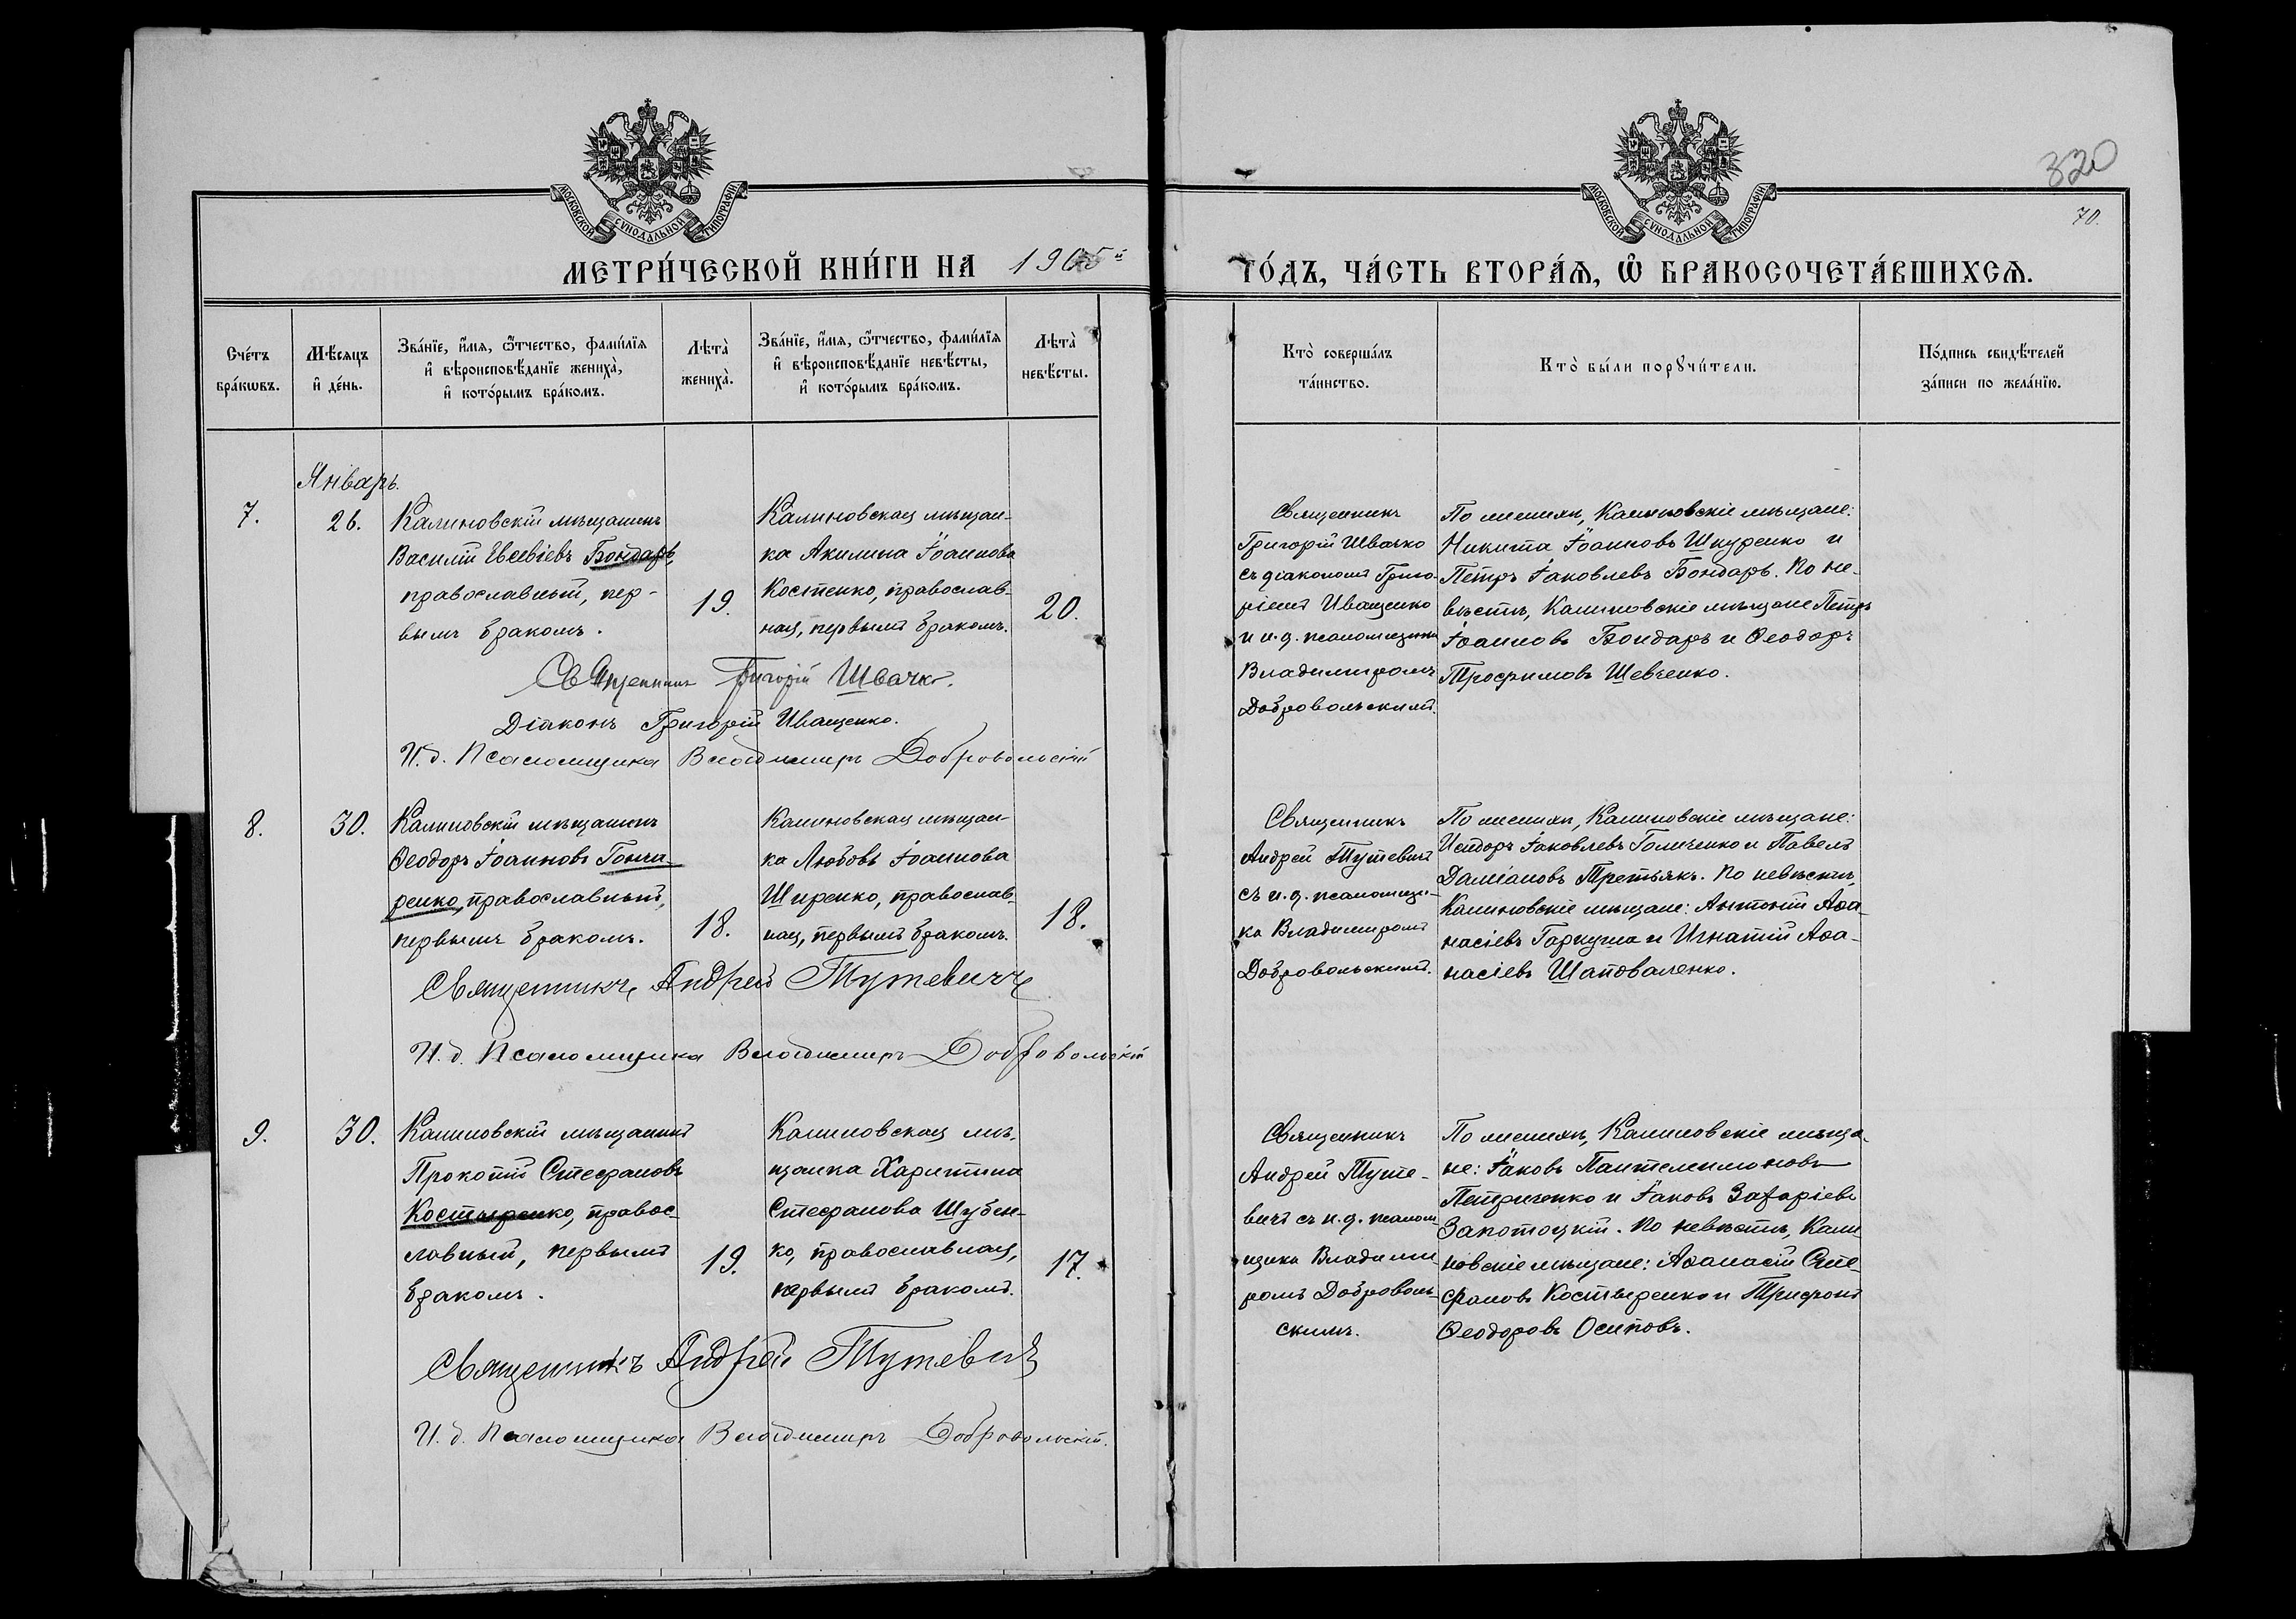 320
70.
МОСКОВСКОЙ СѴНОДАЛЬНОЙ ТИПОГРАФІИ
МОСКОВСКОЙ СѴНОДАЛЬНОЙ ТИПОГРАФІИ
МЕТРИ́ЧЕСКОЙ КНИ́ГИ НА 1905й
ГО́ДЪ, ЧА́СТЬ ВТОРА́Ѧ, Ѽ БРАКОСОЧЕТА́ВШИХСѦ.
Сче́тъ
бра́кѡвъ.
Мѣ́сяцъ
и҆ де́нь.
Зва́нїе, и҆́мя, ѻ҆́тчество, фами́лїя
и҆ вѣроисповѣ́данїе жениха̀,
и҆ кото́рымъ бра́комъ.
Лѣта̀
жениха̀.
Зва́нїе, и҆́мя, ѻ҆́тчество, фами́лїя
и҆ вѣроисповѣ́данїе невѣ́сты,
и҆ кото́рымъ бра́комъ.
Лѣта̀
невѣ́сты.
Кто̀ соверша́лъ
та́инство.
Кто̀ бы́ли порꙋчи́тели.
По́дпись свидѣ́телей
за́писи по жела́нїю.
Январь.
7.
26.
Калиновскій мѣщанинъ
Василій Евсевіевъ Бондарь,
православный, пер-
вымъ бракомъ.
19.
Калиновская мѣщан-
ка Акилина Іоаннова
Костенко, православ-
ная, первымъ бракомъ.
20.
Священникъ
Григорій Швачко
съ діакономъ Григо-
ріемъ Иващенко
и и.д. псаломщика
Владимиромъ
Добровольскимъ.
По женихѣ, Калиновскіе мѣщане:
Никита Іоанновъ Шкуренко и
Петръ Іаковлевъ Бондарь. По не-
вѣстѣ, Калиновскіе мѣщане Петръ
Іоанновъ Бондарь и Ѳеодоръ
Трофимовъ Шевченко.
Священникъ Григорій Швачко.
Діаконъ Григорій Иващенко.
И.д. Псаломщика Владимиръ Добровольскій
8.
30.
Калиновскій мѣщанинъ
Ѳеодоръ Іоанновъ Гонча-
ренко, православный,
первымъ бракомъ.
18.
Калиновская мѣщан-
ка Любовь Іоаннова
Ширенко, православ-
ная, первымъ бракомъ.
18.
Священникъ
Андрей Тутевичъ
съ и.д. псаломщи-
ка Владимиромъ
Добровольскимъ.
По женихѣ, Калиновскіе мѣщане:
Исидоръ Іаковлевъ Голиченко и Павелъ
Даміановъ Третьякъ. По невѣстѣ,
Калиновскіе мѣщане: Антоній Аѳа-
насіевъ Гаркуша и Игнатій Аѳа-
насіевъ Шаповаленко.
Священникъ Андрей Тутевичъ
И.д. Псаломщика Владимиръ Добровольскій
9.
30.
Калиновскій мѣщанинъ
Прокопій Стефановъ
Костыренко, правос-
лавный, первымъ
бракомъ.
19.
Калиновская мѣ-
щанка Харитина
Стефанова Шубен-
ко, православная,
первымъ бракомъ.
17.
Священникъ
Андрей Туте-
вичъ съ и.д. псалом-
щика Владими-
ромъ Доброволь-
скимъ.
По женихѣ, Калиновскіе мѣща-
не: Іаковъ Пантелеимоновъ
Петриченко и Іаковъ Захаріевъ
Запотоцкій. По невѣстѣ, Кали-
новскіе мѣщане: Аѳанасій Сте-
фановъ Костыренко и Трифонъ
Ѳеодоровъ Осиповъ.
Священникъ Андрей Тутевичъ
И.д. Псаломщика Владимиръ Добровольскій.